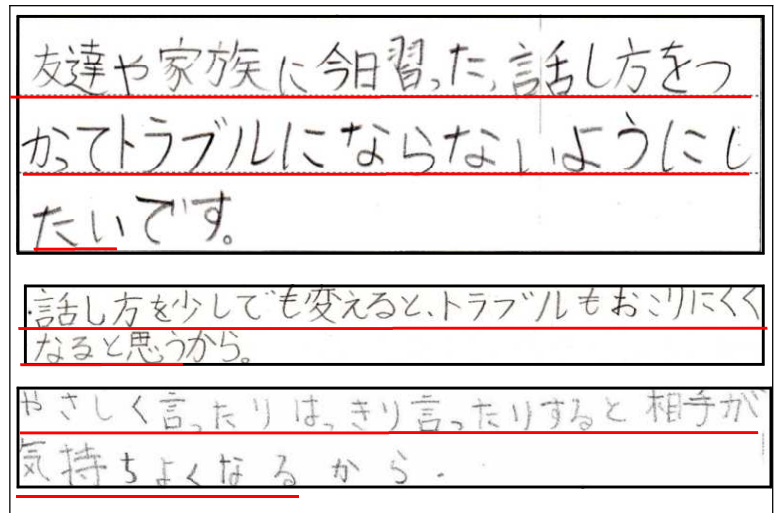 友達や家族に今日習った話し方をつ
かってトラブルにならないようにし
たいです。
・話し方を少しでも変えると、トラブルもおこりにくく
なると思うから。
やさしく言ったりはっきり言ったりすると相手が
気持ちよくなるから.